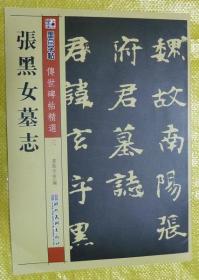 張黑女墓志
墨点字帖
傳世碑帖精選
魏故南陽張
府君墓誌
君諱玄字黑